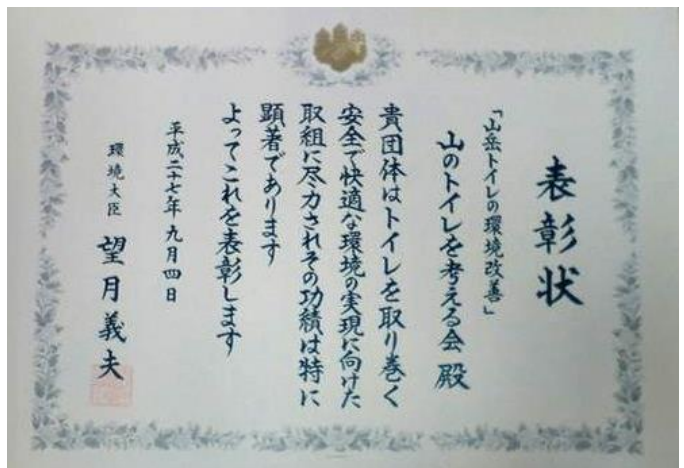 表彰状
「山岳トイレの環境改善」
山のトイレを考える会 殿
貴団体はトイレを取り巻く
安全で快適な環境の実現に向けた
取組に尽力されその功績は特に
顕著であります
よってこれを表彰します
平成二十七年九月四日
環境大臣 望月義夫